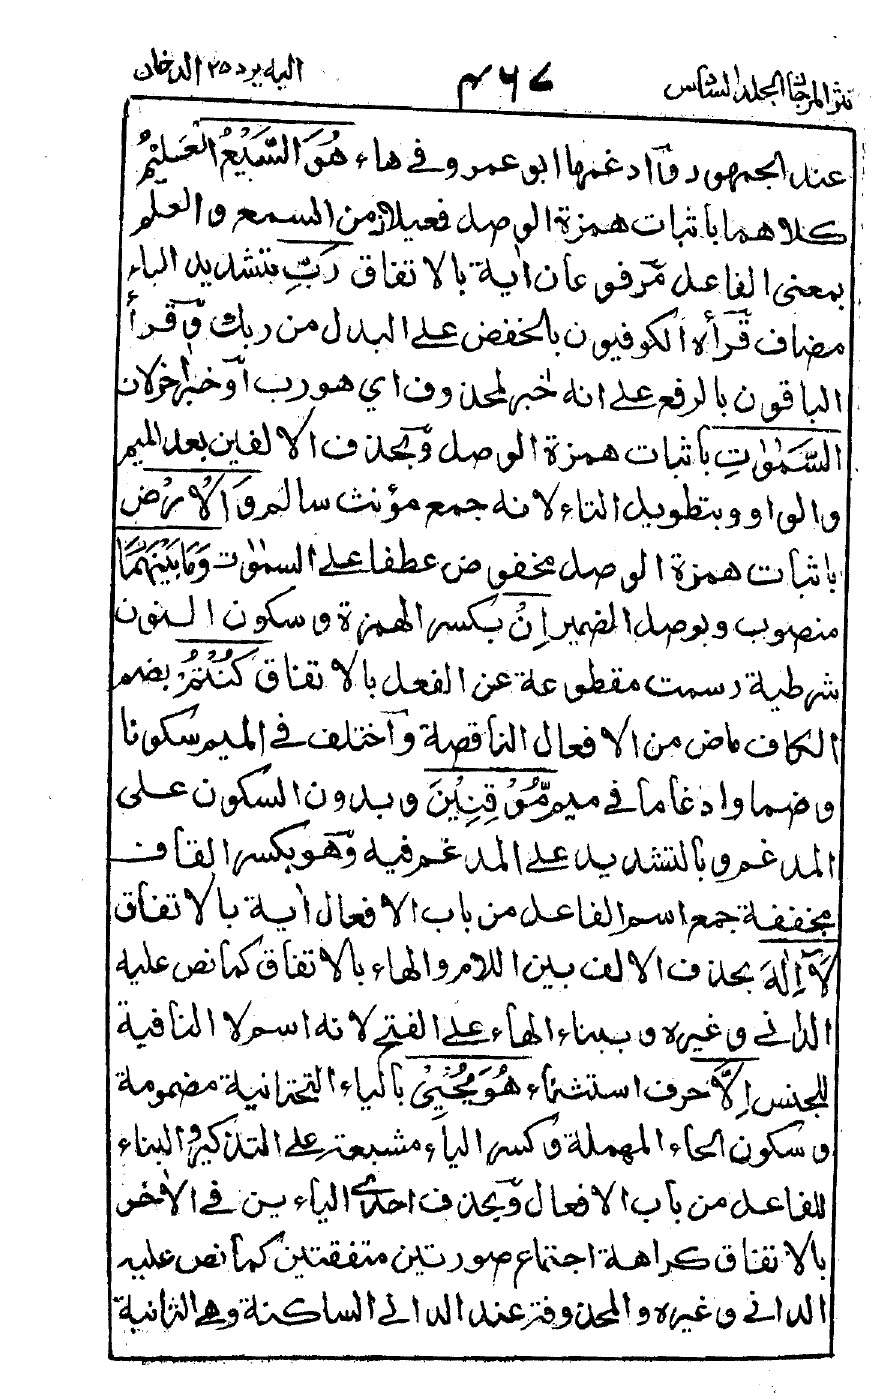 نثر المرجان المجلد السادس ٤٦٧ اليه يرد ٢٥ الدخان
عند الجمهور وَّادغمها ابو عمرو في هاء هُوَ السَّمِيْعُ الْعَلِيْمُ
كلاهما باثبات همزة الوصل فعيلان من السمع والعلم
بمعنى الفاعل مرفوعان اٰية بالاتفاق رَبِّ بتشديد الباء
مضاف قرأه الكوفيون بالخفض على البدل من ربك وقرأ
الباقون بالرفع على انه خبر لمحذوف اي هو رب او خبر اخر لان
السَّمٰوٰتِ باثبات همزة الوصل وبحذف الالفين بعد الميم
والواو وبتطويل التاء لانه جمع مؤنث سالم وَالْاَرْضِ
باثبات همزة الوصل مخفوض عطفا على السمٰوٰت وَمَا بَيْنَهُمَا
منصوب وبوصل الضمير اِنْ بكسر الهمزة وسكون النون
شرطية رسمت مقطوعة عن الفعل بالاتفاق كُنْتُمْ بضم
الكاف ماض من الافعال الناقصة واختلف في الميم سكونا
وضما وادغاما في ميم مُّوْقِنِيْنَ وبدون السكون على
المدغم وبالتشديد على المدغم فيه وهو بكسر القاف
مخففة جمع اسم الفاعل من باب الافعال اٰية بالاتفاق
لَآ اِلٰهَ بحذف الالف بين اللام والهاء بالاتفاق كما نص عليه
الداني وغيره وببناء الهاء على الفتح لانه اسم لا النافية
للجنس اِلَّا حرف استثناء هُوَ يُحْيِيْ بالياء التحتانية مضمومة
وسكون الحاء المهملة وكسر الياء مشبعة على التذكير والبناء
للفاعل من باب الافعال وبحذف احدى الياءين في الاخر
بالاتفاق كراهة اجتماع صورتين متفقتين كما نص عليه
الداني وغيره والمحذوفة عند الداني الساكنة وهي الثانية